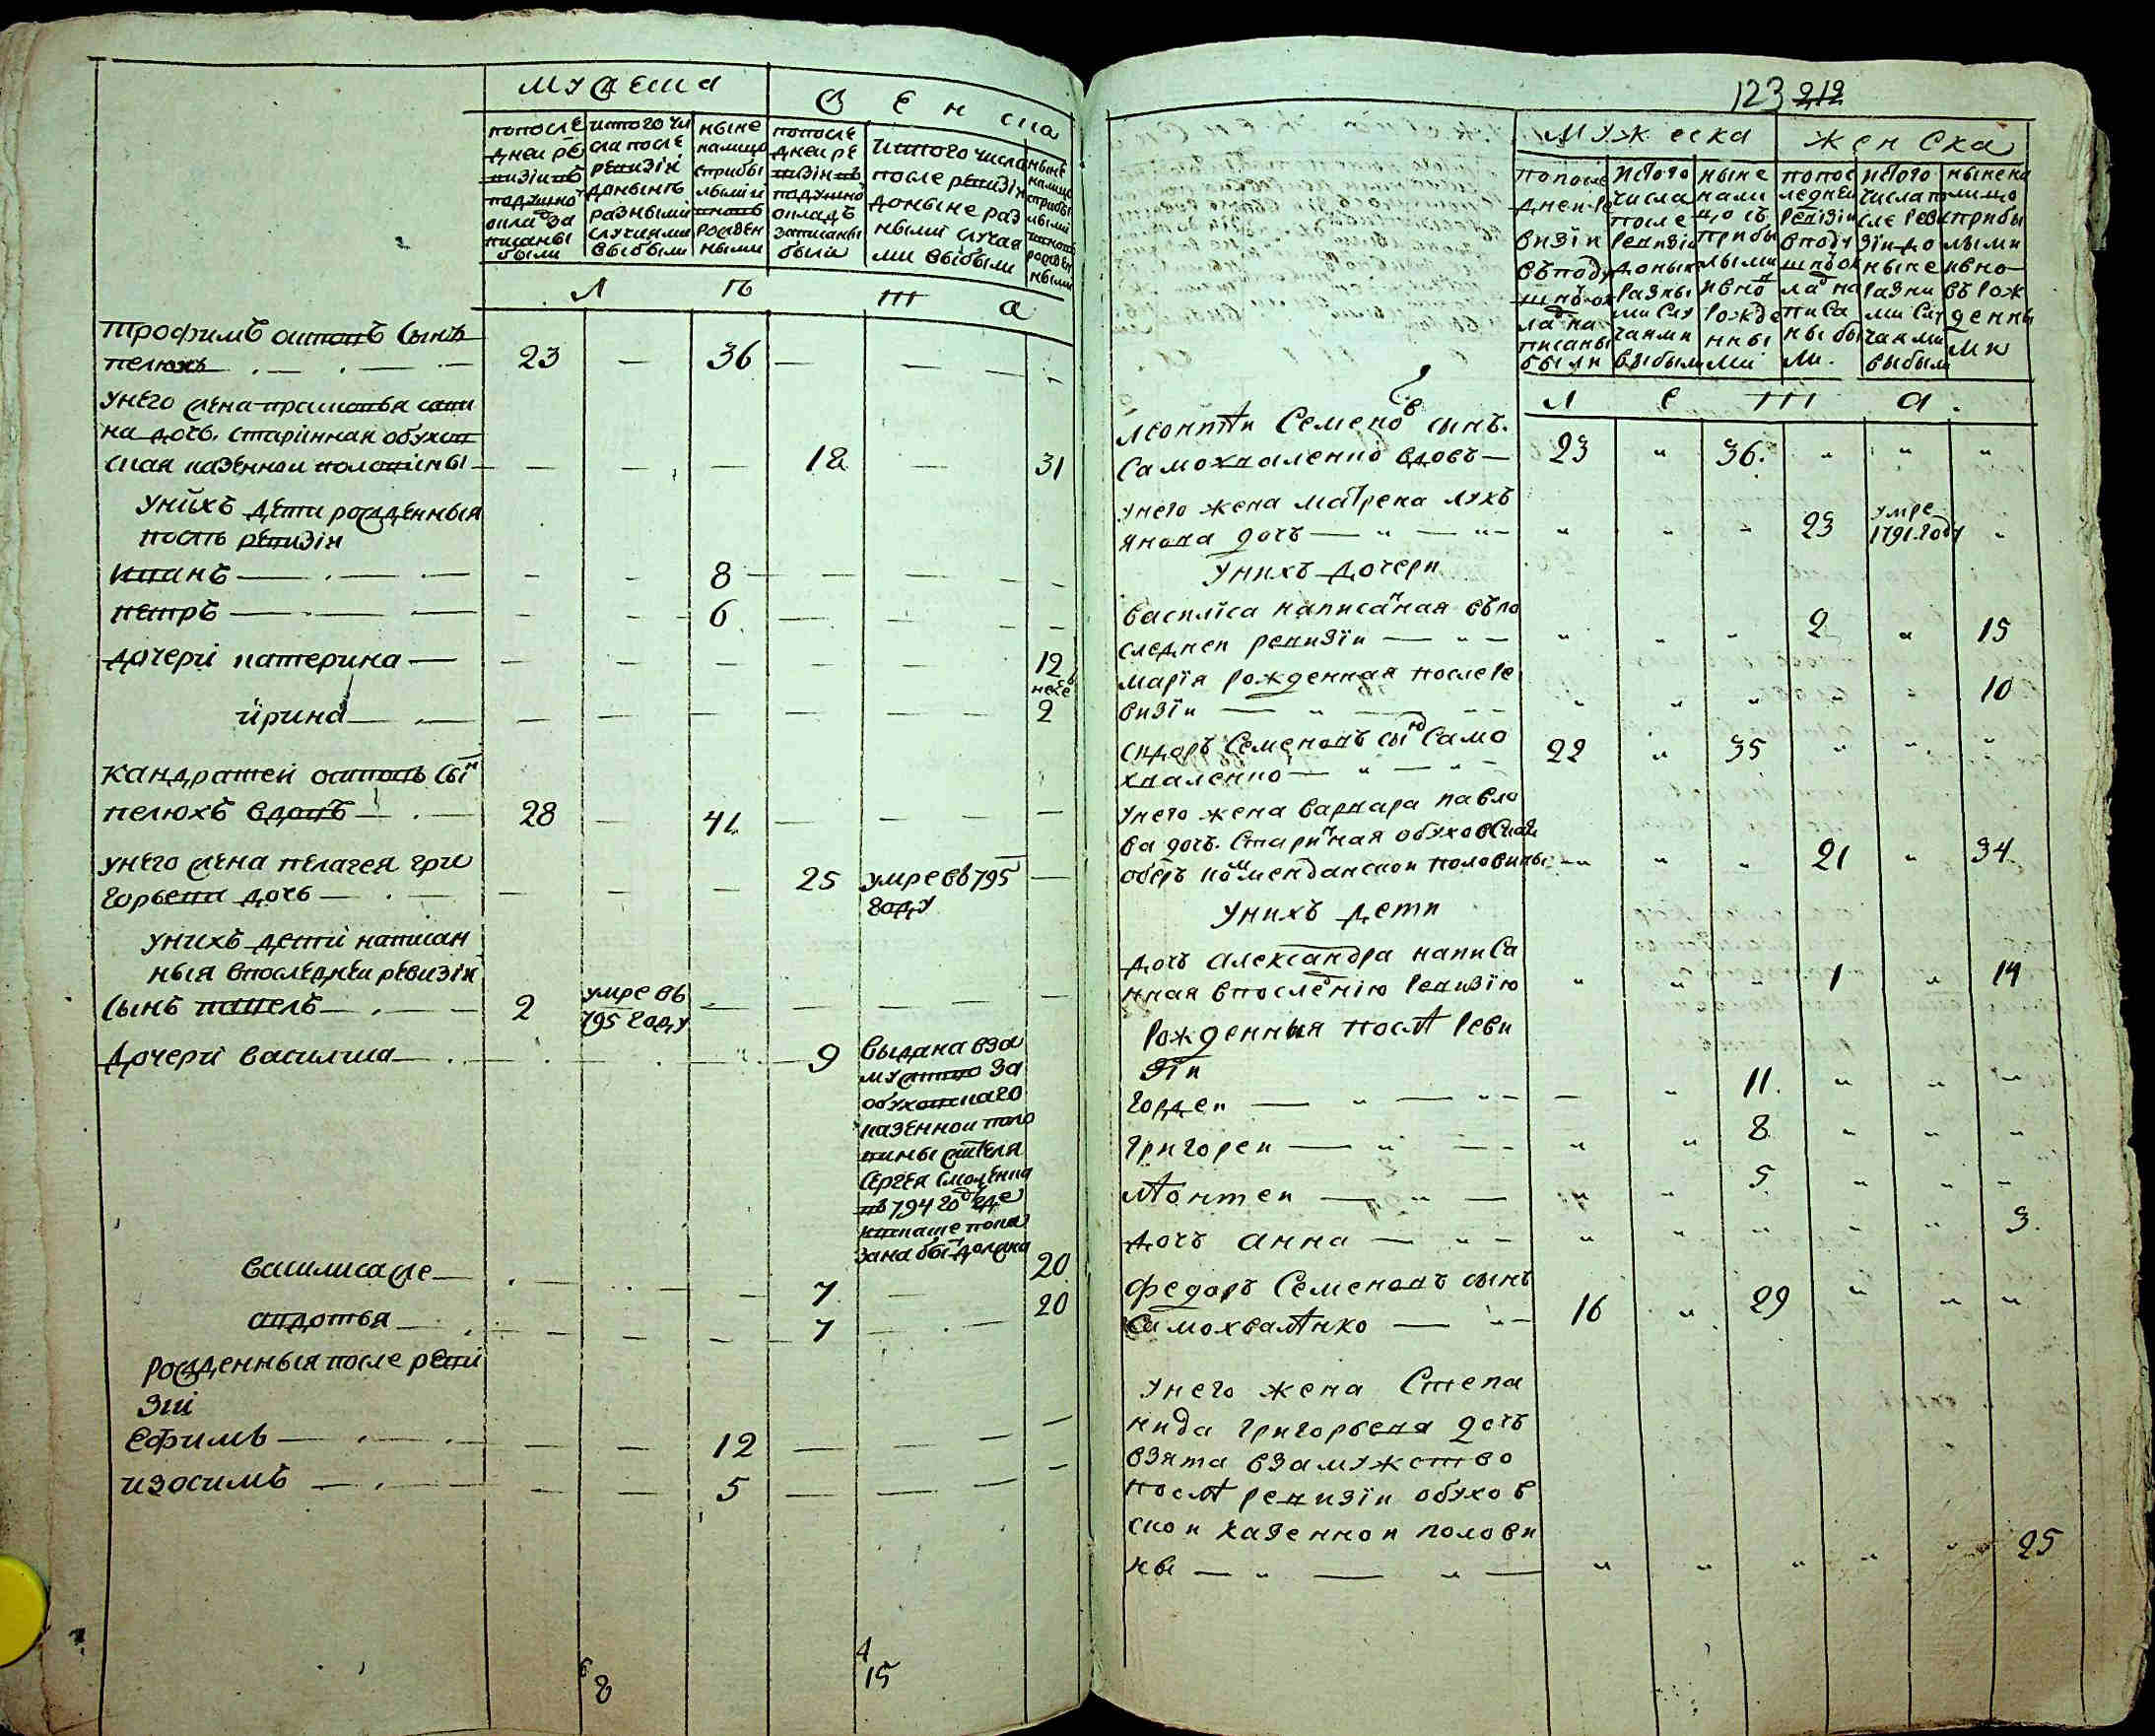 мужеска
женска
попосле
дней ре
визiи въ
подушно
окладъ за
писаны
были
истого чи
сла после
ревизiй
донынѣ
разными
случаями
выбыли
ныне
налицо
сприбы
лыми и
вновь
рожден
ными
попосле
дней ре
визiи въ
подушно
окладъ
записаны
были
истого числа
после ревизiи
доныне раз
ными случая
ми выбыли
ныне
налицо
сприбы
лыми
ивновь
рожден
ными
л ѣ т а
трофимъ остаповъ сынъ
пелюхъ — . — . — —
унего жена прасковья сави
на дочь. старинная обухов
ская казенной половины — — — — 18 — 31
23 — 36 — — — —
унихъ дети рожденныя
послѣ ревизiи
иванъ — . — — — — 8 — — — —
петръ — — — — — 6 — — — —
дочери катерина — — — — — — — 12
нееё
ирина — . — — — — — — — 2
кандратей остаповъ сын
пелюхъ вдовъ — . — 28 — 41 — — — —
унего жена пелагея гри
горьева дочь — . — — — — 25 умре въ 795 —
году
унихъ дети написан
ныя впоследней ревизiи
сынъ павелъ — . — — 2 умре въ — — — —
795 году
дочери василиса — . — . — 9 выдана вза
мужство за
обуховскаго
казенной поло
вины жителя
сергея смоленка
въ 794 год где
ивпаше пока
зана быт должна
василиса же — . — — — 7 — 20
авдотья — . — — — — 7 — . — 20
рожденныя после реви
зiи
ефимъ — . — . — — — 12 — — — —
изосимъ — . — — — — 5 — — — —
6
8
4
15
123 212
мужеска
женска
попосле
дней ре
визiи
въподу
шнъ ок
лад на
писаны
были
истого
числа
после
ревизiи
донын
разны
ми слу
чаями
выбыли
ныне
нали
цо съ
прибы
лыми
ивно
рожде
нны
ми
попос
ледней
ревизiи
вподу
шнъ ок
лад на
писа
ны бы
ли.
истого
числа по
сле реви
зiи до
ныне
разны
ми слу
чаями
выбыли
ныне на
лицо
прибы
лыми
ивно
въ рож
денны
ми
л е т а .
леонтѣи семенов сынъ.
самохваленко вдовъ — 23 „ 36. „ „ „
унего жена матрена лукъ
янова дочъ — „ — „ — „ „ „ 23 умре „
1791. году
унихъ дочери
василiса написанная въпо
следнеи ревизiи — „ — „ „ „ 2 „ 15
марiя рожденная после ре
визiи — „ — — — „ „ „ „ „ 10
сидоръ семеновъ сын само
хваленко — „ — „ — 22 „ 35 „ „ „
унего жена варвара павло
ва дочъ. старинная обуховская
оберъ коменданской половины — „ „ „ 21 „ 34
унихъ дети
дочъ александра написа
нная впоследнiю ревизiю „ „ „ 1 „ 14
рожденныя послѣ реви
зiи
гордеи — „ — „ — — „ 11. „ „ „
григореи — „ — — „ „ 8 „ „ „
лѣонтеи — „ — „ „ 5 „ „ „
дочъ анна — „ — „ „ „ „ „ 3.
федоръ семеновъ сынъ
самохвалѣнко — „ — 16 „ 29 „ „ „
унего жена степа
нида григорьева дочъ
взята взамужство
послѣ ревизiи обухов
ской казенной полови
ны — „ — „ — „ „ „ „ „ 25